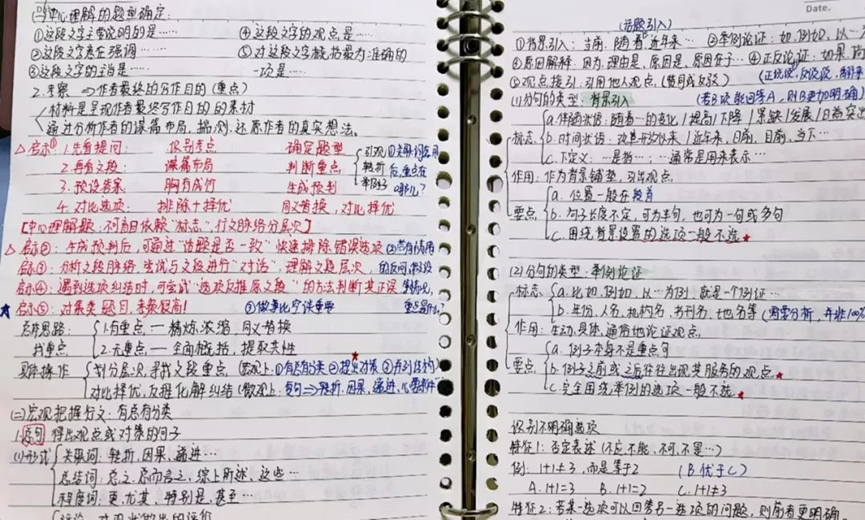 (一)中心理解的题型确定:
①这段文字主要说明的是…… ④这段文字的观点是……
②这段文字意在强调…… ⑤对这段文字概括最为准确的
③这段文字的主旨是…… 一项是……
2.考察 ⇒作者最终的写作目的(重点)
材料是呈现作者最终写作目的的素材
通过分析作者的谋篇布局,揣测、还原作者的真实想法。
启示① 1.先看提问: 识别考点 确定题型
2.再看文段: 谋篇布局 判断重点
3.预设答案 胸有成竹 生成预判
4.对比选项: 排除+择优 同义替换,对比择优
[中心理解题:不盲目依赖"标志",行文脉络分层次]
启示②:生成预判后,可通过"话题是否一致"快速排除错误选项
启示③:分析文段脉络,尝试与文段进行"对话",理解文段层次,
启示④:遇到选项纠结时,可尝试"选项反推原文段"的方法判断其正误
启示⑤:对策类题目,考频极高! ③做事比空谈重要
总体思路: 1.有重点 — 精炼浓缩,同义替换
找重点 2.无重点 — 全面概括,提取共性
具体操作 划分层次,寻找文段重点
对比择优,反推化解纠结
(二)宏观把握行文:有总有分类
1.总句 得出观点或对策的句子
(1)形式 关联词:转折,因果,递进…
总结词:总之,总而言之,综上所述,这些…
程度词:更,尤其,特别是,甚至…
(话题引入)
Date.
①背景引入:当前,随着,近年来…
④原因解释:因为,理由是,原因是,原因在于… ④正反论证:如果
⑤观点援引:引用他人观点(赞同或反驳)
(1)分句的类型:背景引入
标志 a.伴随状语:随着…的变化/提高/下降
b.时间状语:改革开放以来/近年来,目前,当下…
c.下定义:…是指…;…通常是用来表示…
作用:作为背景铺垫,引出观点
要点 a.位置一般在段首
b.句子长度不定,可为半句,也可为一句或多句
c.围绕背景设置的选项一般不选★
(2)分句的类型:举例论证
标志 a.比如,例如,以…为例,就是一个例证…
b.年份,人名,机构名,书刊名,地名等
作用:生动、具体、通俗地论证观点
要点 a.例子本身不是重点句
b.例子之前或之后往往出现其服务的观点★
c.完全围绕举例的选项一般不选★
识别不明确选项
特征1:否定表述(不应,不能,不可,不是…)
例:1+1≠3,而是等于2 (B优于C)
A.1+1=3 B.1+1=2 C.1+1≠3
特征2:若某一选项可以回答另一选项的问题,则前者更明确